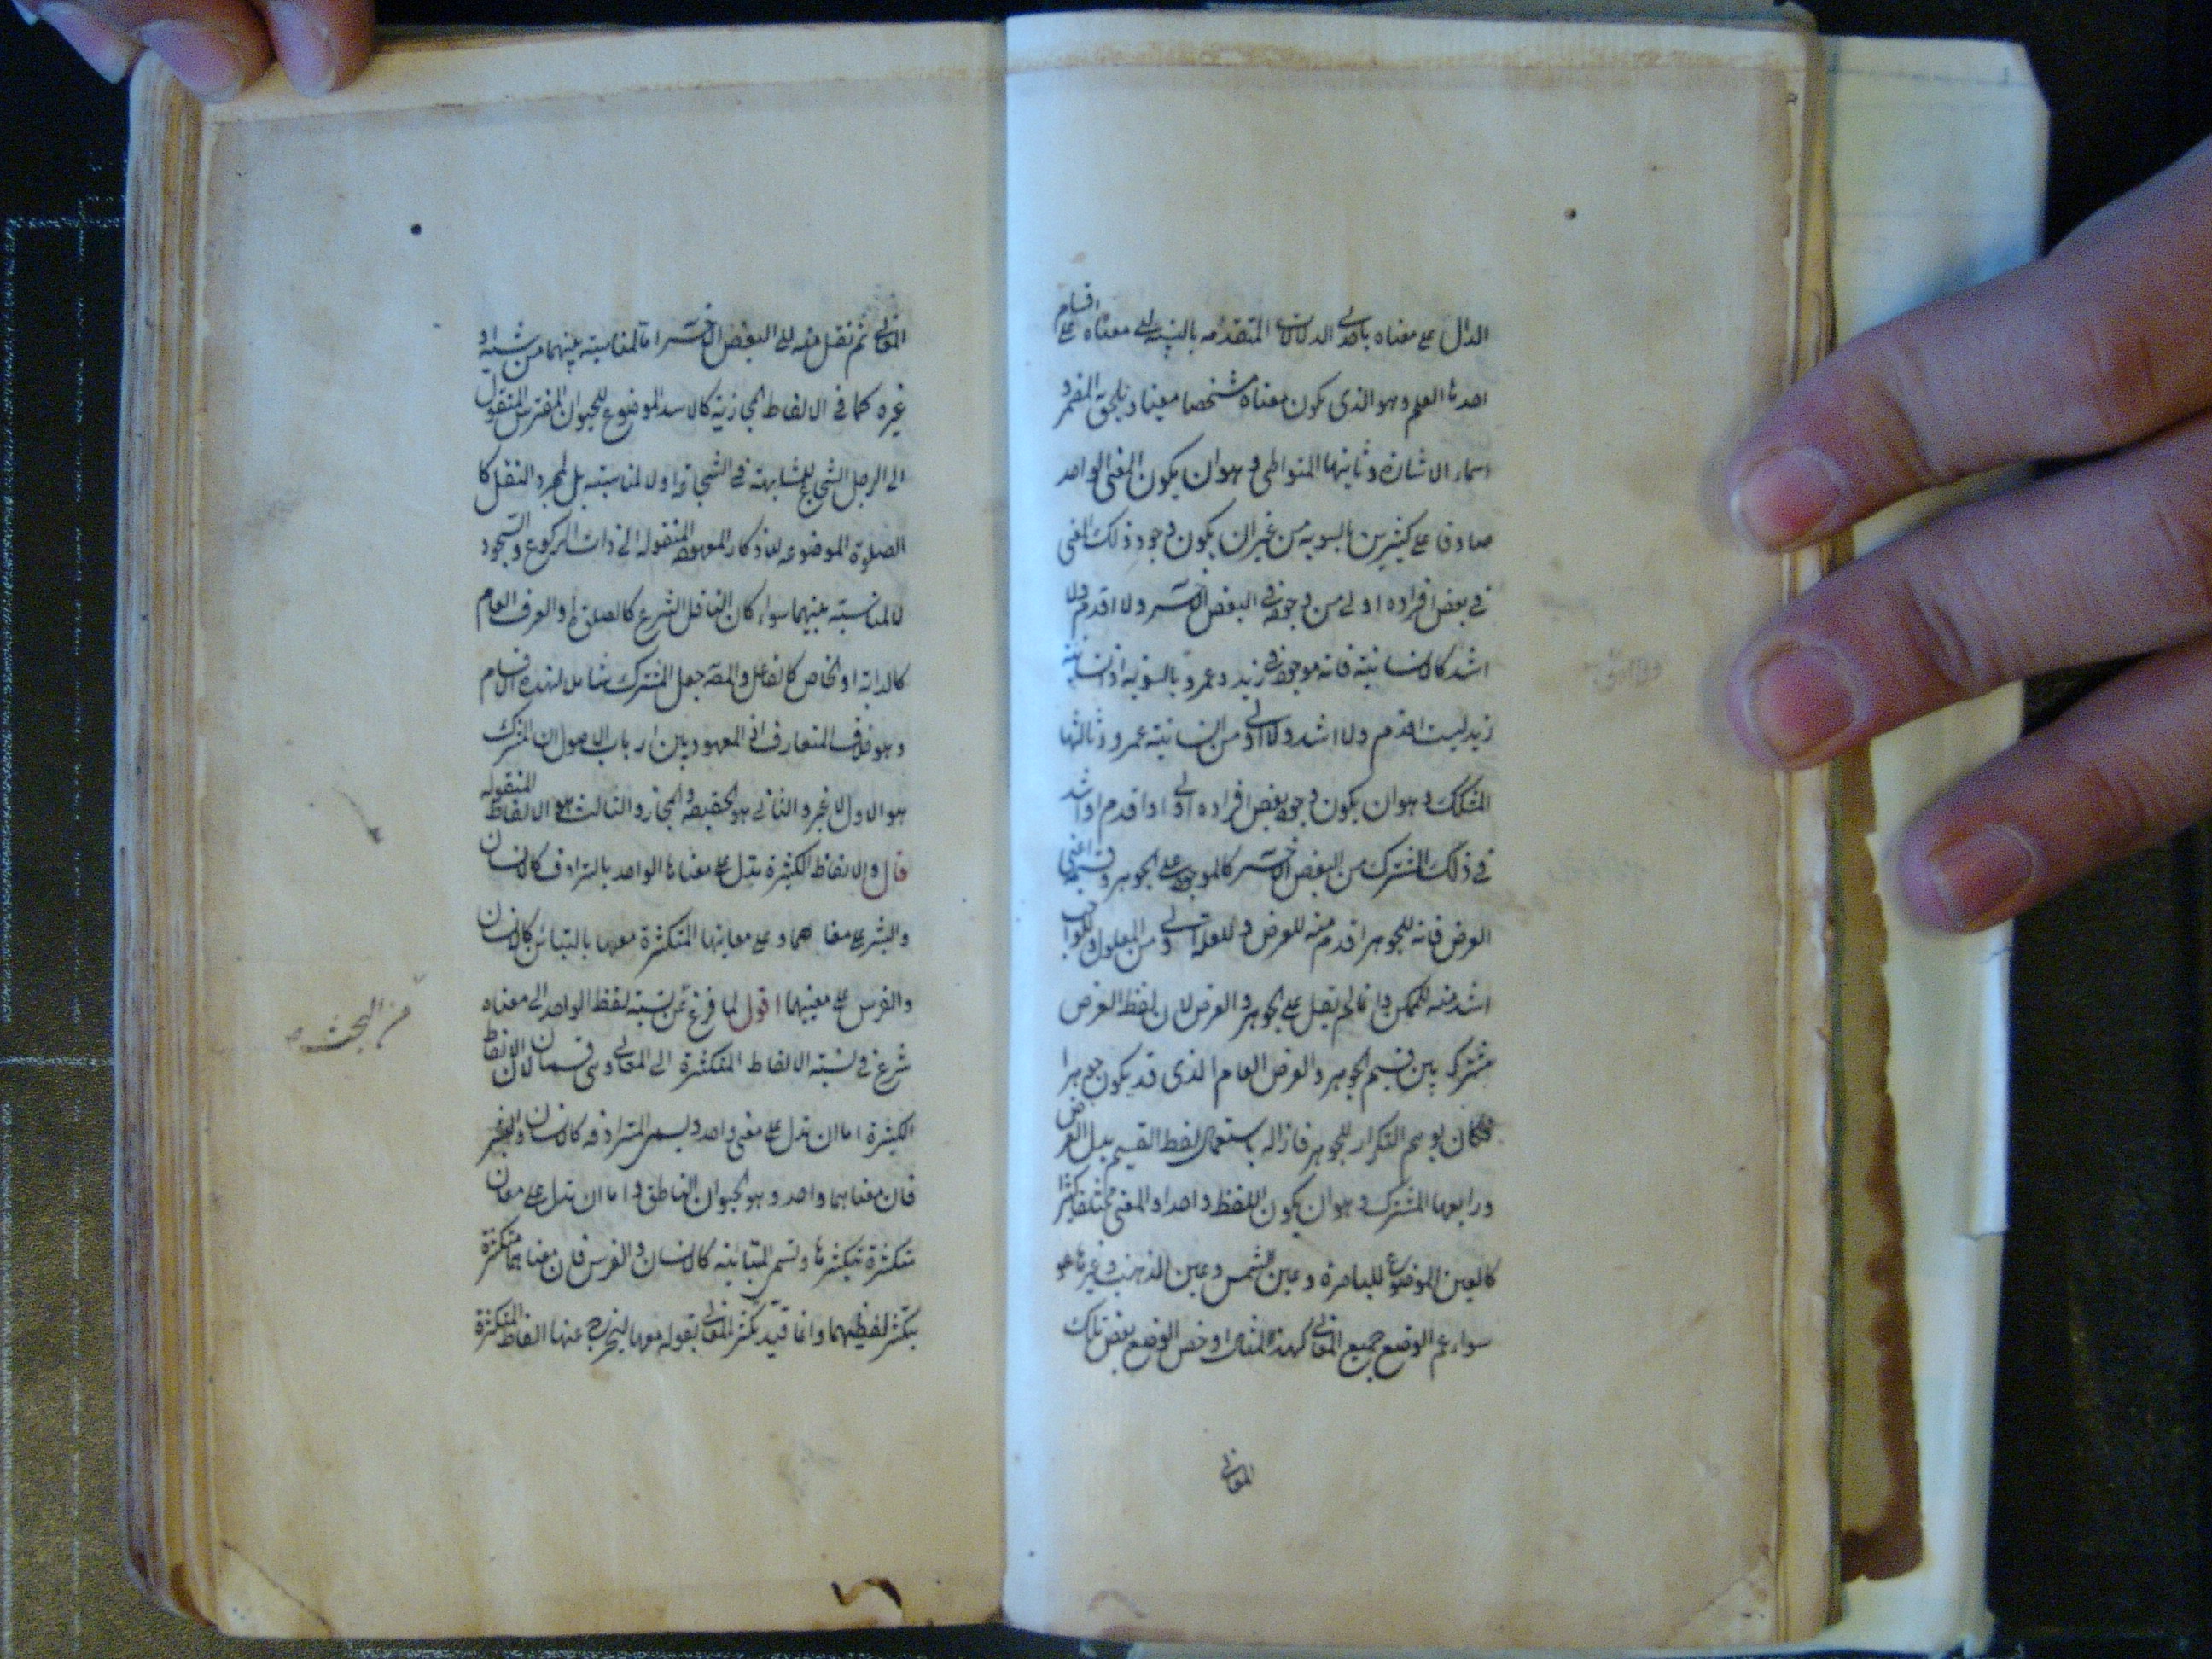 الدال على معناه باحدى الدلالات المتقدمه بالنسبة الى معناه على اقسام
احدها العلم وهو الذى يكون معناه مشخصا معينا ويلحق به المضمر و
اسماء الاشارة وثانيها المتواطى وهو ان يكون المعنى الواحد
صادقا على كثيرين بالسويه من غير ان يكون وجود ذلك المعنى
فى بعض افراده اولى من وجوده فى البعض الاخر ولا اقدم ولا
اشد كالانسانية فانه موجود فى زيد وعمرو بالسويه اذ انسانية
زيد ليست اقدم ولا اشد ولا اولى من انسانية عمرو وثالثها
المشكك وهو ان يكون وجود بعض افراده اولى او اقدم او اشد
فى ذلك المشترك من البعض الاخر كالموجود على الجوهر وقسيمه اعنى
العرض فانه للجوهر اقدم منه للعرض وللعلة اولى من المعلول وللواجب
اشد منه للممكن وانما لم يقل على الجوهر والعرض لان لفظ العرض
مشترك بين قسيم الجوهر والعرض العام الذى قد يكون جوهرا
فكان يوهم التكرار للجوهر فازاله باستعمال لفظ القسيم بدل العرض
ورابعها المشترك وهو ان يكون اللفظ واحدا والمعنى مختلفا كثيرا
كالعين الموضوع للباصرة وعين الشمس وعين الذهب وغيرها هو
سواء عم الوضع جميع المعانى كهذه المثال او خص الوضع بعض تلك
المعانى
المعانى ثم نقل منه الى البعض الاخر اما لمناسبته بينهما من شبه او
غيره كما فى الالفاظ المجازية كالاسد الموضوع للحيوان المفترس المنقول
الى الرجل الشجاع للمشابهته فى الشجاعة او لا لمناسبته بل لمجرد النقل كا
الصلوة الموضوعه للاذكار المعهوده المنقوله الى ذات الركوع والسجود
لا لمناسبته بينهما سواء كان الناقل الشرع كالصلوة او العرف العام
كالدابه او الخاص كالفاعل والمصـ جعل المشترك شاملا لهذه الاقسام
وهو خلاف المتعارف اذ المعهود بين ارباب الاصول ان المشترك
هو الاول لا غير والثانى هو الحقيقه والمجاز والثالث هو الالفاظ المنقوله
قال والالفاظ الكثيرة تدل على معناها الواحد بالترادف كالانسان
والبشر على معناهما وعلى معانيها المتكثرة معها بالتباين كالانسان
والفرس على معنييهما اقول لما فرغ عن نسبته لفظ الواحد الى معناه
شرع فى نسبته الالفاظ المتكثرة الى المعانى وهى قسمان لان الالفاظ
الكثيرة اما ان تدل على معنى واحد ويسمى المترادفه كالانسان والبشر
فان معناهما واحد وهو الحيوان الناطق واما ان تدل على معان
متكثرة بتكثرها وتسمى المتباينه كالانسان والفرس فان معناهما متكثرة
بتكثر لفظيهما وانما قيد تكثر المعانى بقوله معها ليخرج عنها الفاظ المتكثرة
من البحث